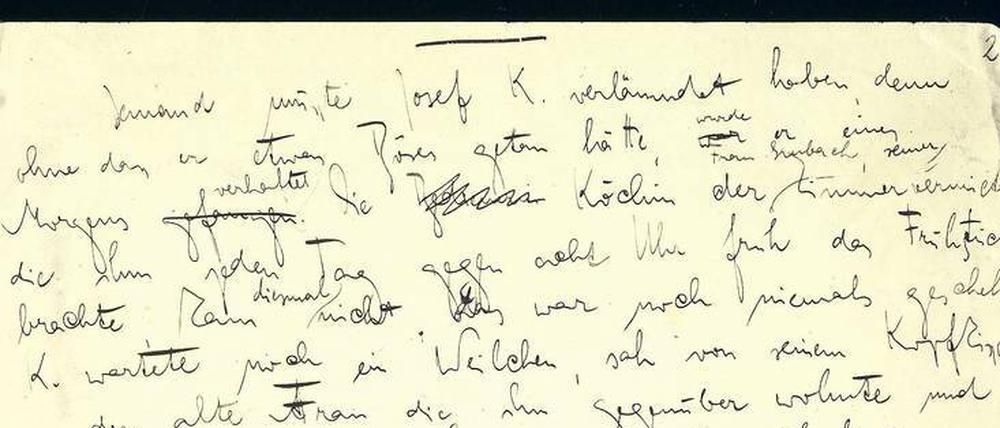 2
Jemand mußte Josef K. verläumdet haben, denn
ohne dass er etwas Böses getan hätte, wurde er eines
Frau Grubach, seiner
Morgens gefangen verhaftet. Die Köchin der Zimmervermiet
die ihm jeden Tag gegen acht Uhr früh das Frühstüc
brachte kam diesmal nicht. Das war noch niemals gescheh
K. wartete noch ein Weilchen, sah von seinem Kopfkiss
die alte Frau die ihm gegenüber wohnte und